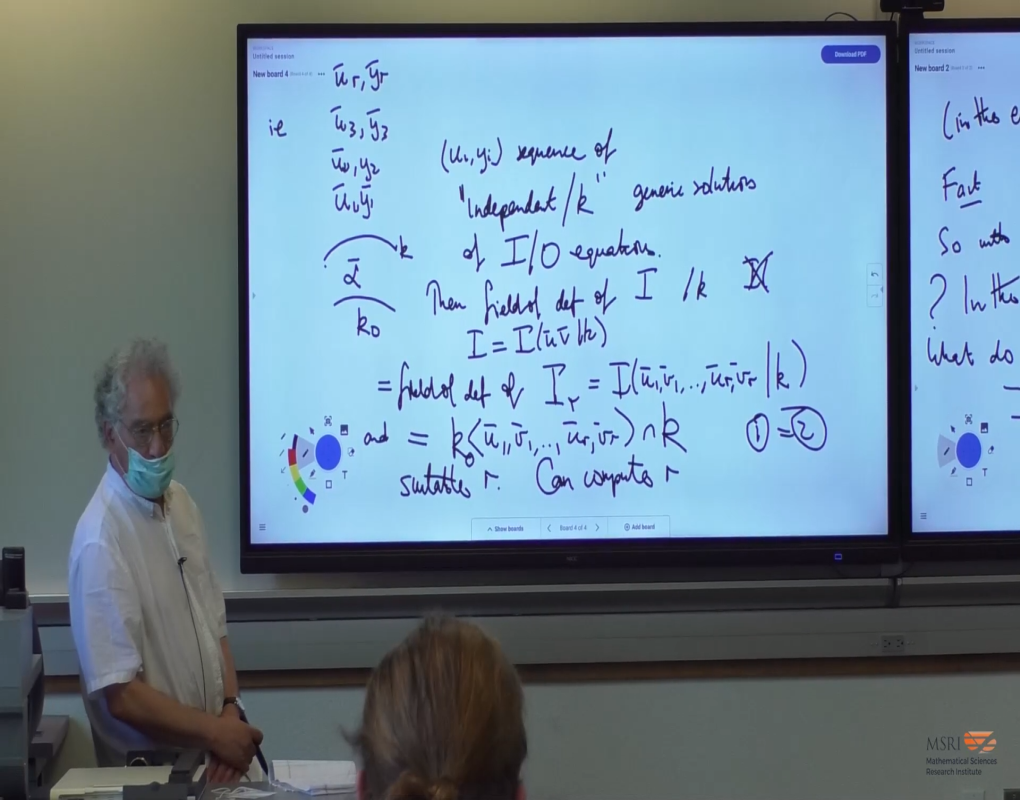 Untitled session
New board 4
Download PDF
ū_r, ȳ_r
ie ū_3, ȳ_3
ū_2, y_2
ū_1 ȳ_1
(u_i, y_i) sequence of
"Independent/k" generic solutions
of I/O equations.
k
ᾱ
k_0
Then field of def of I /k
I = I(ū v̄ | k)
= field of def of I_r = I(ū_1, v̄_1, .., ū_r, v̄_r | k)
and = k_0<ū_1, v̄_1, .., ū_r, v̄_r> ∩ k
① = ②
suitables r. Can computes r
Show boards
Board 4 of 4
Add board
Untitled session
New board 2
(in the e
Fact
So with
? In this
What do
MSRI
Mathematical Sciences
Research Institute